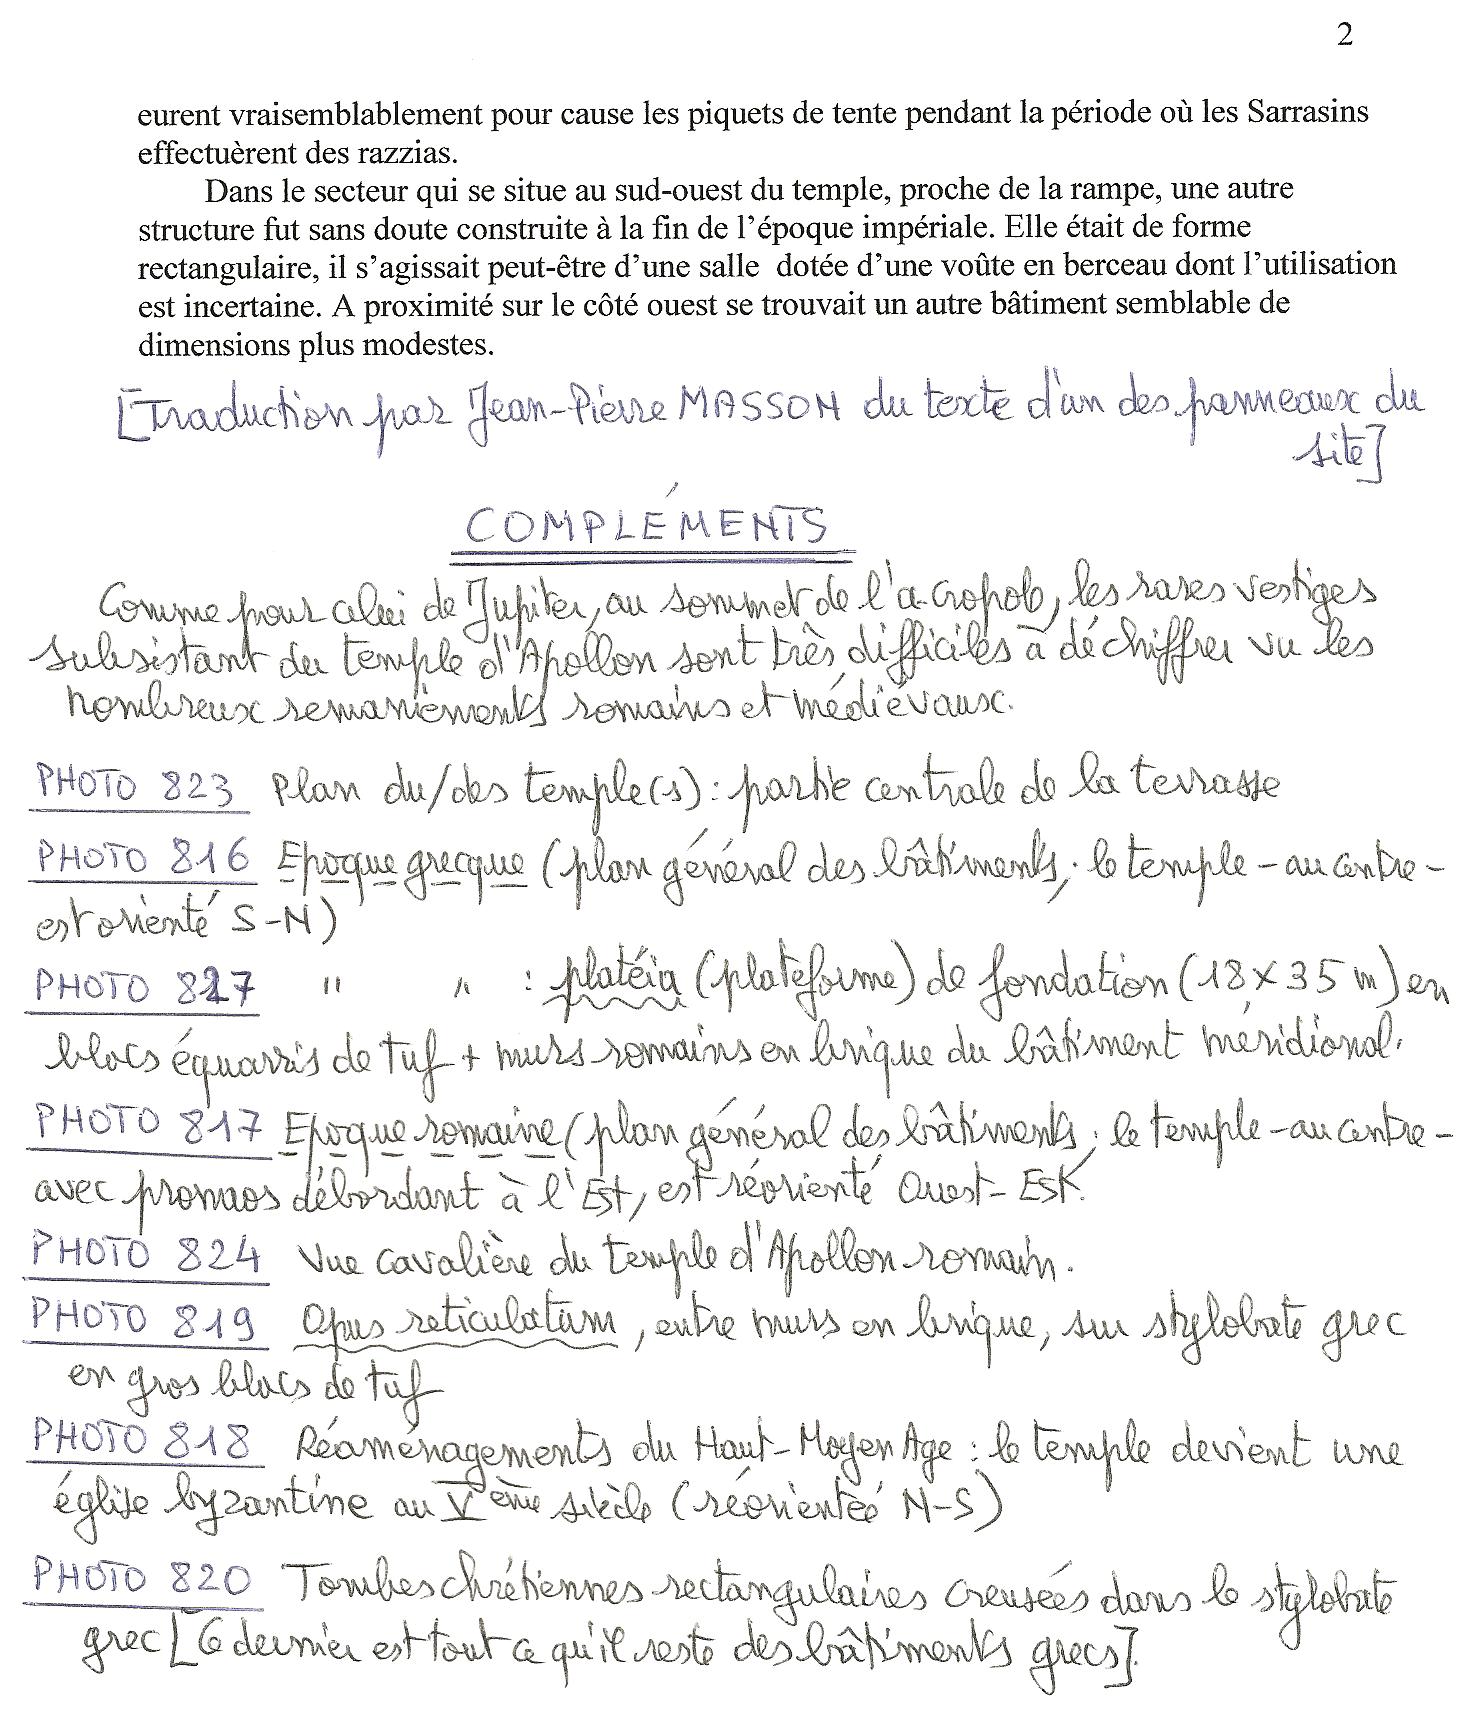 2
eurent vraisemblablement pour cause les piquets de tente pendant la période où les Sarrasins
effectuèrent des razzias.
Dans le secteur qui se situe au sud-ouest du temple, proche de la rampe, une autre
structure fut sans doute construite à la fin de l’époque impériale. Elle était de forme
rectangulaire, il s’agissait peut-être d’une salle dotée d’une voûte en berceau dont l’utilisation
est incertaine. A proximité sur le côté ouest se trouvait un autre bâtiment semblable de
dimensions plus modestes.
[Traduction par Jean-Pierre MASSON du texte d'un des panneaux du
site]
COMPLÉMENTS
Comme pour celui de Jupiter, au sommet de l'acropole, les rares vestiges
subsistant du temple d'Apollon sont très difficiles à déchiffrer vu les
nombreux remaniements romains et médiévaux.
PHOTO 823 Plan du/des temple(s) : partie centrale de la terrasse
PHOTO 816 Epoque grecque (plan général des bâtiments ; le temple - au centre -
est orienté S-N)
PHOTO 827 " " : platéia (plateforme) de fondation (18 x 35 m) en
blocs équarris de tuf + murs romains en brique du bâtiment méridional.
PHOTO 817 Epoque romaine (plan général des bâtiments ; le temple - au centre -
avec pronaos débordant à l'Est, est réorienté Ouest-Est.
PHOTO 824 Vue cavalière du temple d'Apollon romain.
PHOTO 819 Opus reticulatum, entre murs en brique, sur stylobate grec
en gros blocs de tuf
PHOTO 818 Réaménagements du Haut-Moyen Age : le temple devient une
église byzantine au Vème siècle (réorientée N-S)
PHOTO 820 Tombes chrétiennes rectangulaires creusées dans le stylobate
grec [Ce dernier est tout ce qu'il reste des bâtiments grecs].